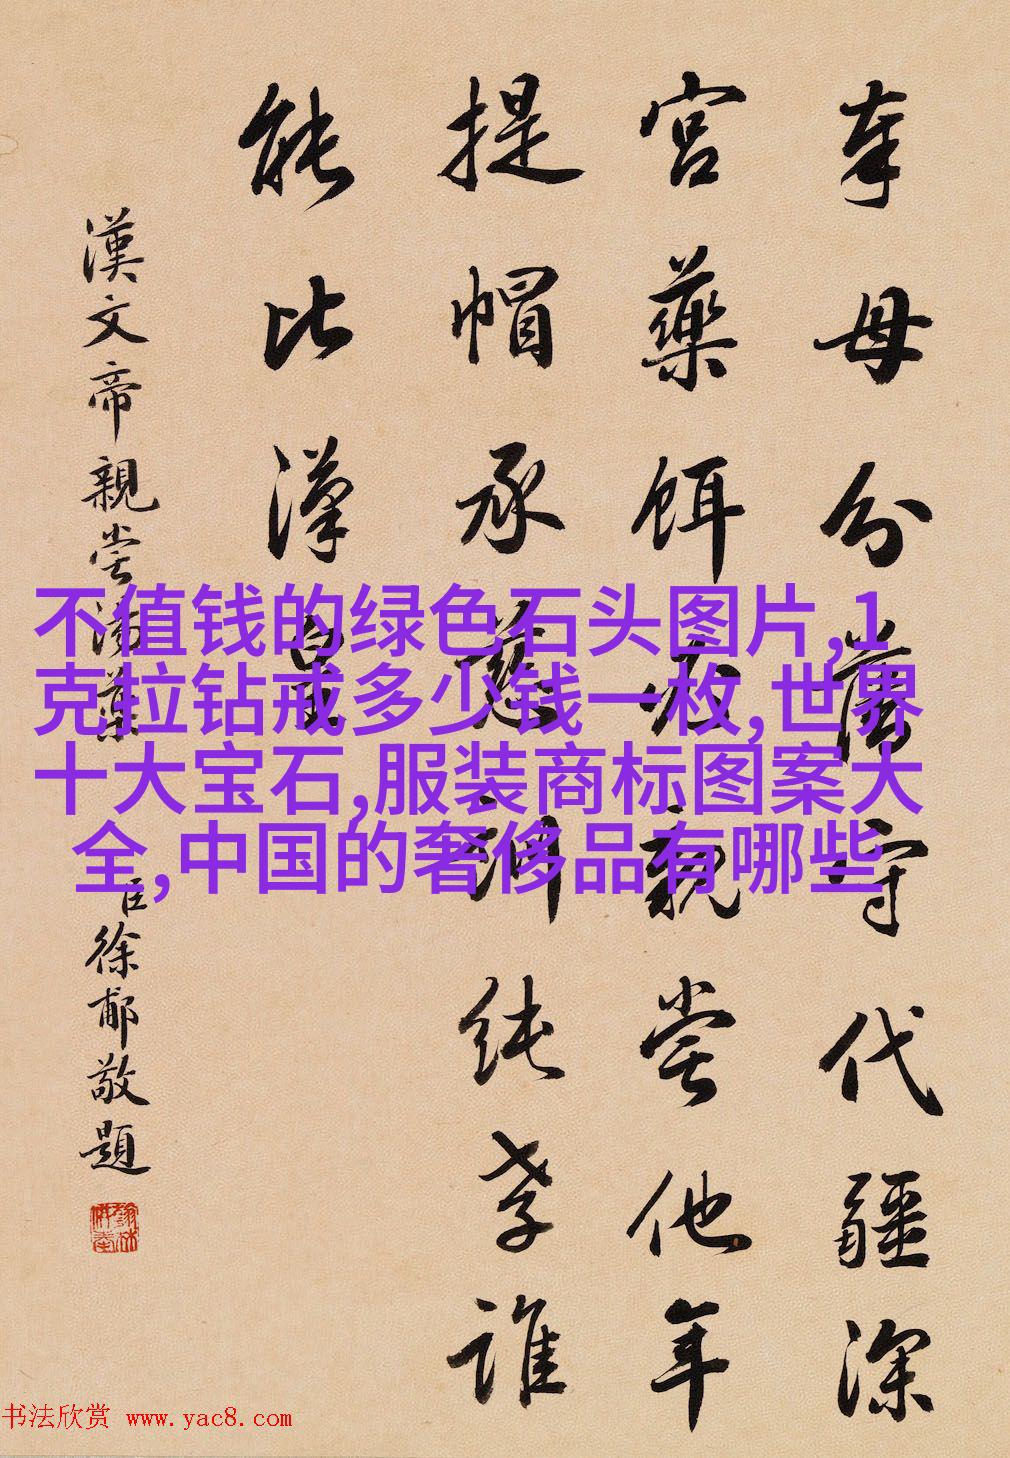 奉母分藩守代疆深
宫藥餌親嘗他年
提帽承慈訓純孝誰
能比漢皇
漢文帝親嘗湯藥
臣徐郙敬題
不值钱的绿色石头图片,1
克拉钻戒多少钱一枚,世界
十大宝石,服装商标图案大
全,中国的奢侈品有哪些
书法欣赏 www.yac8.com